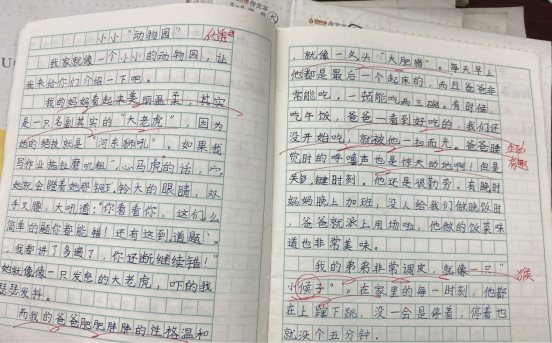 小小“动物园”
我家就像一个小小的动物园，让
我来给你们介绍一下吧。
我的妈妈看起来美丽温柔，其实
是一只名副其实的“大老虎”，因为
她的绝技就是“河东狮吼”。如果我
写作业拖拉磨叽粗心马虎的话，
她就会瞪着她那铃大的眼睛，双
手叉腰，大吼道：“你看看你，这们么
简单的题你都能错！还有这到道题，
我都讲了多遍了，你还断继续错！”
她就像像一只发怒的大老虎，吓的我
瑟瑟发抖。
而我的爸爸肥肥胖胖的性格温和
，就像一久头“大肥猪”。每天早上
他都是最后一个起床的，而且爸爸非
常能吃，一顿能吃两三碗。有时候，
吃午饭，爸爸一看到好吃的，我们还
没开始吃，就被他一扫而光。爸爸睡
觉时的呼噜声也是惊天动地啊！但是
关键时刻，他还是很勤劳。有晚时
妈妈晚上加班，没人给我们做晚饭时
，爸爸就派上用场啦，他做的饭菜味
道也非常美味。
生动
有趣
我的弟弟非常调皮，就像一只“
小候子”。在家里的每一时刻，他都
猴
在上蹿下跳，没一会是停着，停着也
就没个五分钟。